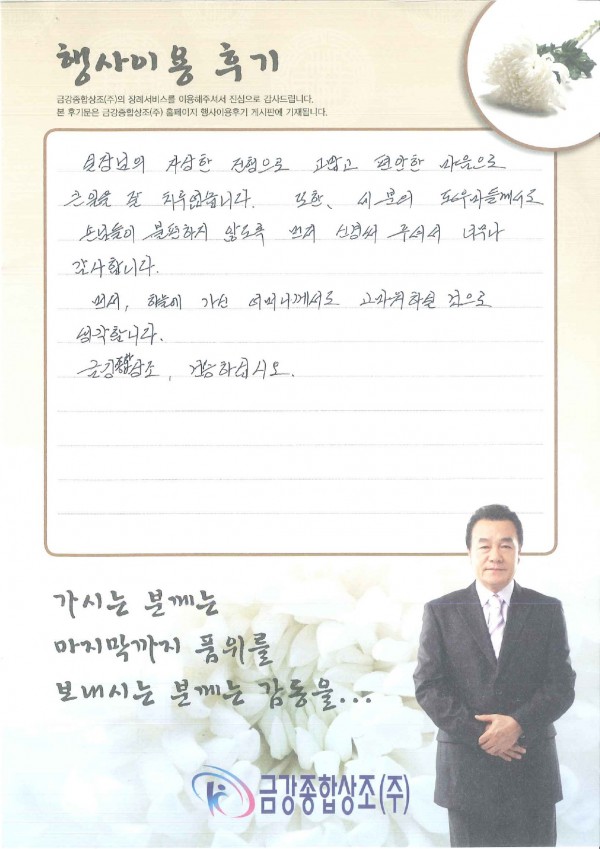 행사이용 후기
금강종합상조(주)의 장례서비스를 이용해주셔서 진심으로 감사드립니다.
본 후기문은 금강종합상조(주) 홈페이지 행사이용후기 게시판에 기재됩니다.
실장님의 자상한 진행으로 고맙고 편안한 마음으로
큰일을 잘 치루었습니다. 또한, 네분의 도우미들께서도
손님들이 불편하지 않도록 먼저 신경써 주셔서 너무나
감사합니다.
하늘에 가신 어머니께서도 고마워하실 것으로
생각합니다.
금강종합상조, 건승하십시오.
가시는 분께는
마지막까지 품위를
보내시는 분께는 감동을...
금강종합상조(주)